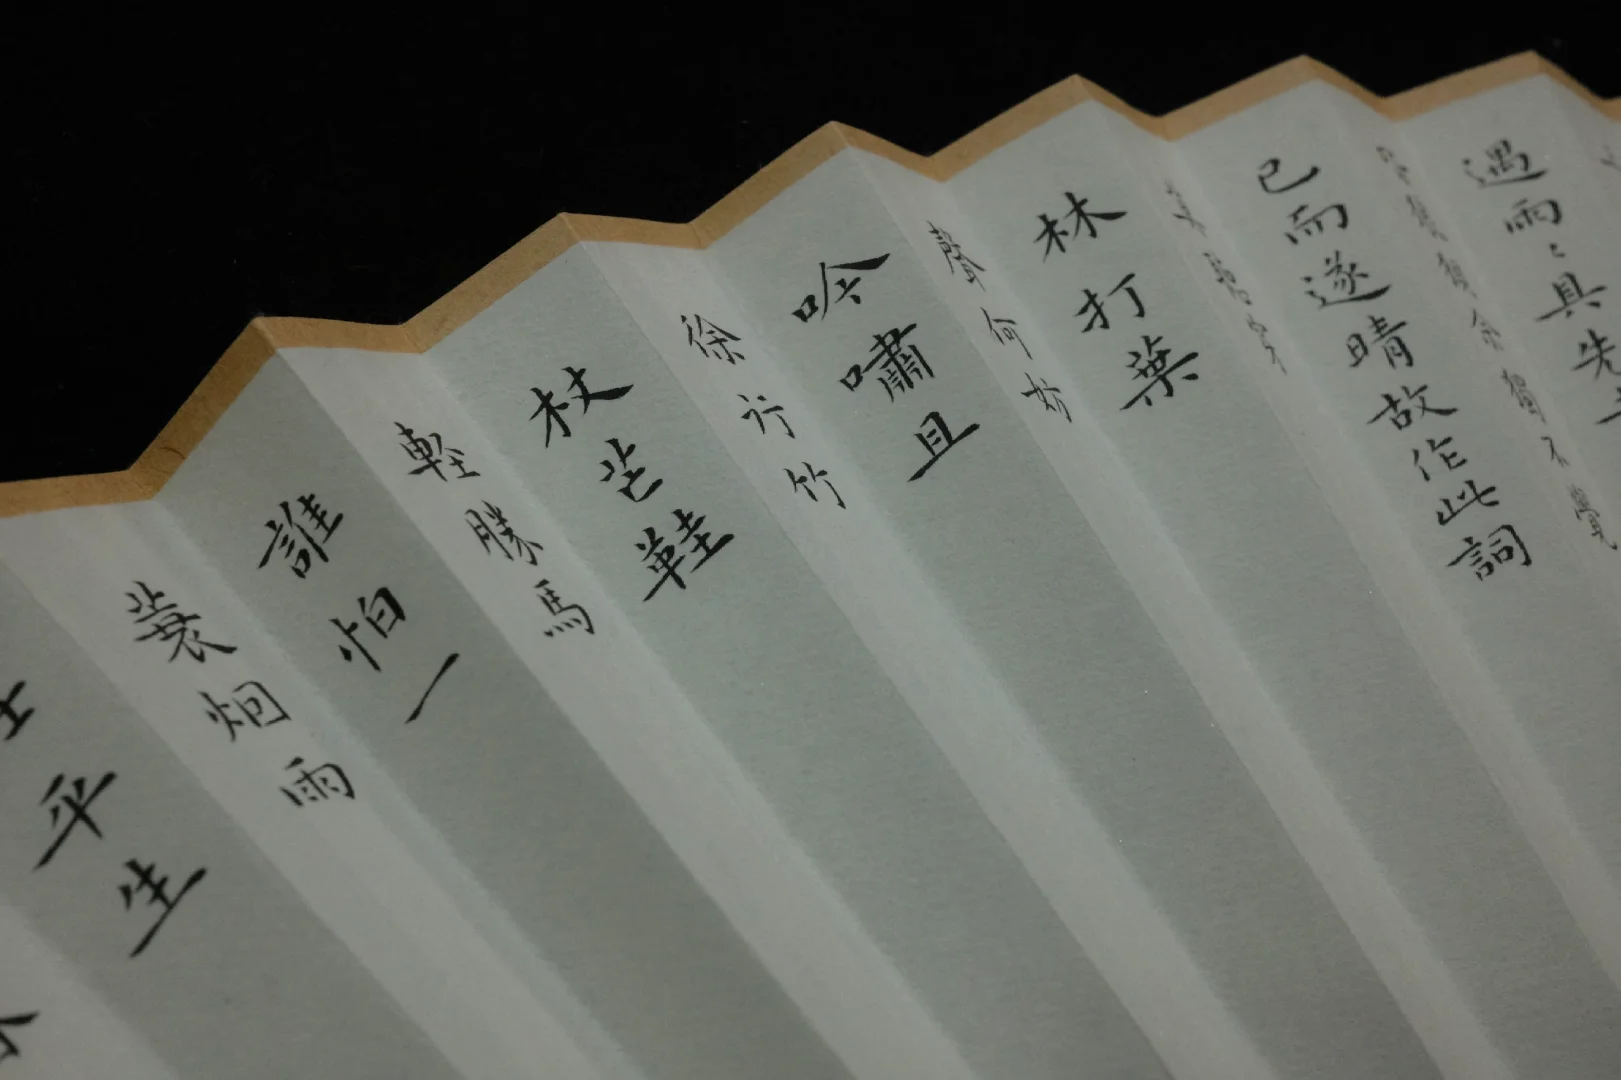 遇雨〻具先
皆狼狽余獨不覺
已而遂晴故作此詞
莫聽穿
林打葉
聲何妨
吟嘯且
徐行竹
杖芒鞋
輕勝馬
誰怕一
蓑烟雨
平生